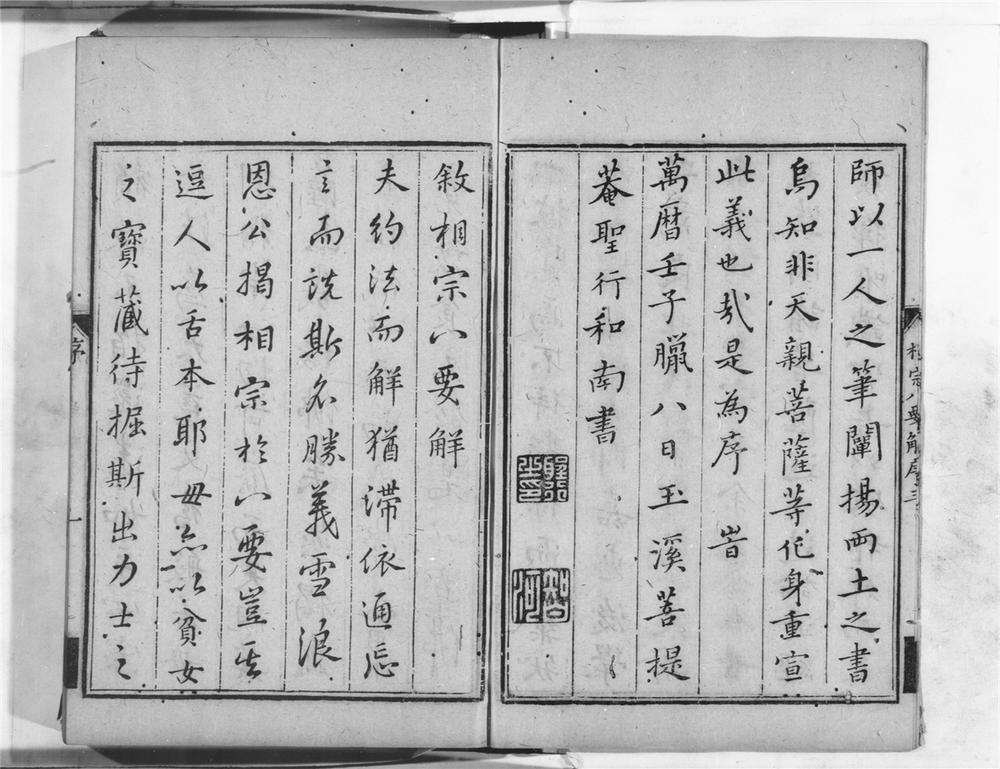 相宗八要解序 三
師以一人之筆闡揚兩土之書
烏知非天親菩薩等化身重宣
此義也哉是為序 旹
萬曆壬子臘八日玉溪菩提
菴聖行和南書
敘相宗八要解
夫約法而解猶滯依通忘
言而說斯名勝義雪浪
恩公揭相宗於八要豈其
逗人以舌本耶毋亦以貧女
之寶藏待掘斯出力士之
序
一